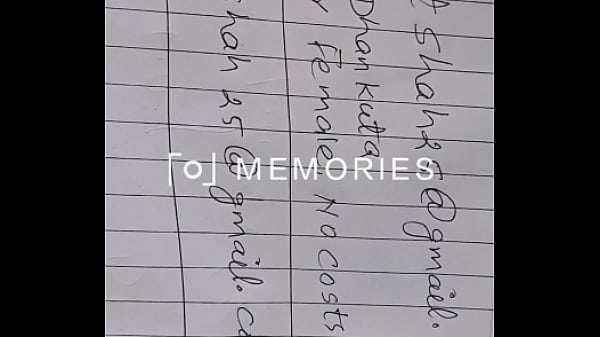 Shah25@gmail.
Dhankuta
Female No costs
hah 25@gmail.c
MEMORIES